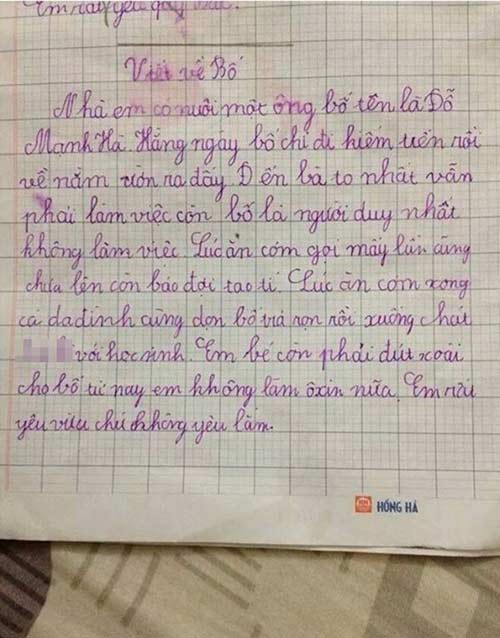 Em rất yêu quý
Viết về Bố
Nhà em có nuôi một ông bố tên là Đỗ
Mạnh Hà. Hằng ngày bố chỉ đi kiếm tiền rồi
về nằm ườn ra đấy. Đến bà to nhất vẫn
phải làm việc còn bố là người duy nhất
không làm việc. Lúc ăn cơm gọi mấy lần cũng
chưa lên còn bảo đợi tao tí. Lúc ăn cơm xong
cả da đình cùng dọn bố trả rọn rồi xuống chat
với học sinh. Em bé còn phải đút xoài
cho bố từ nay em không làm ôxin nữa. Em
yêu vừa chứ không yêu lắm.
HỒNG HÀ